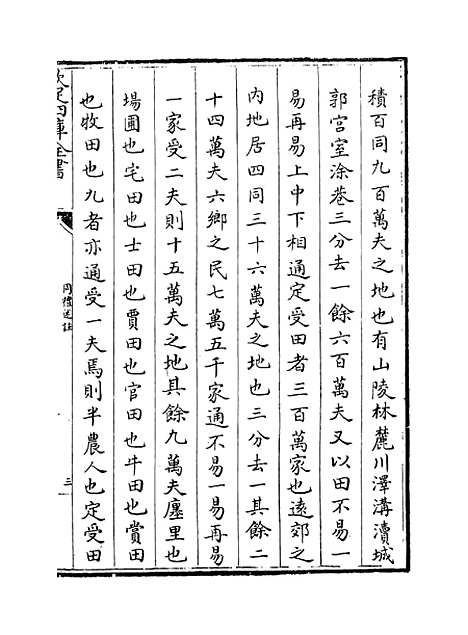 積百同九百萬夫之地也有山陵林麓川澤溝瀆城
郭宫室涂巷三分去一餘六百萬夫又以田不易一
易再易上中下相通定受田者三百萬家也遠郊之
内地居四同三十六萬夫之地也三分去一其餘二
十四萬夫六鄉之民七萬五千家通不易一易再易
一家受二夫則十五萬夫之地其餘九萬夫廛里也
場圃也宅田也士田也賈田也官田也牛田也賞田
也牧田也九者亦通受一夫焉則半農人也定受田
欽定四庫全書
周禮述註
三